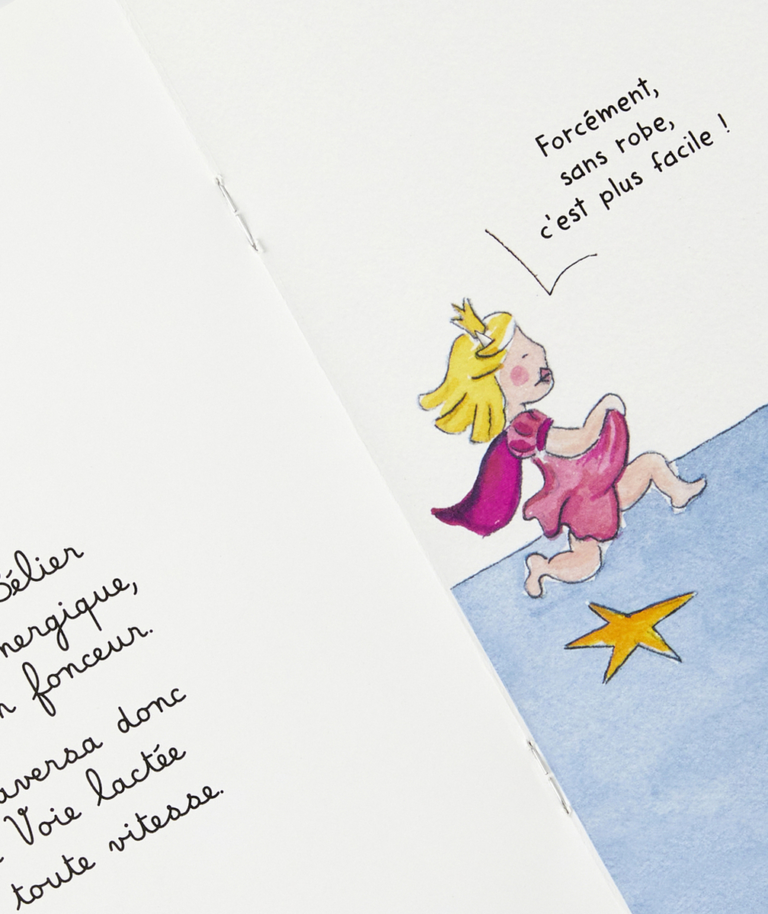 Bélier
nergique,
n fonceur.
aversa donc
Voie lactée
toute vitesse.
Forcément,
sans robe,
c'est plus facile !